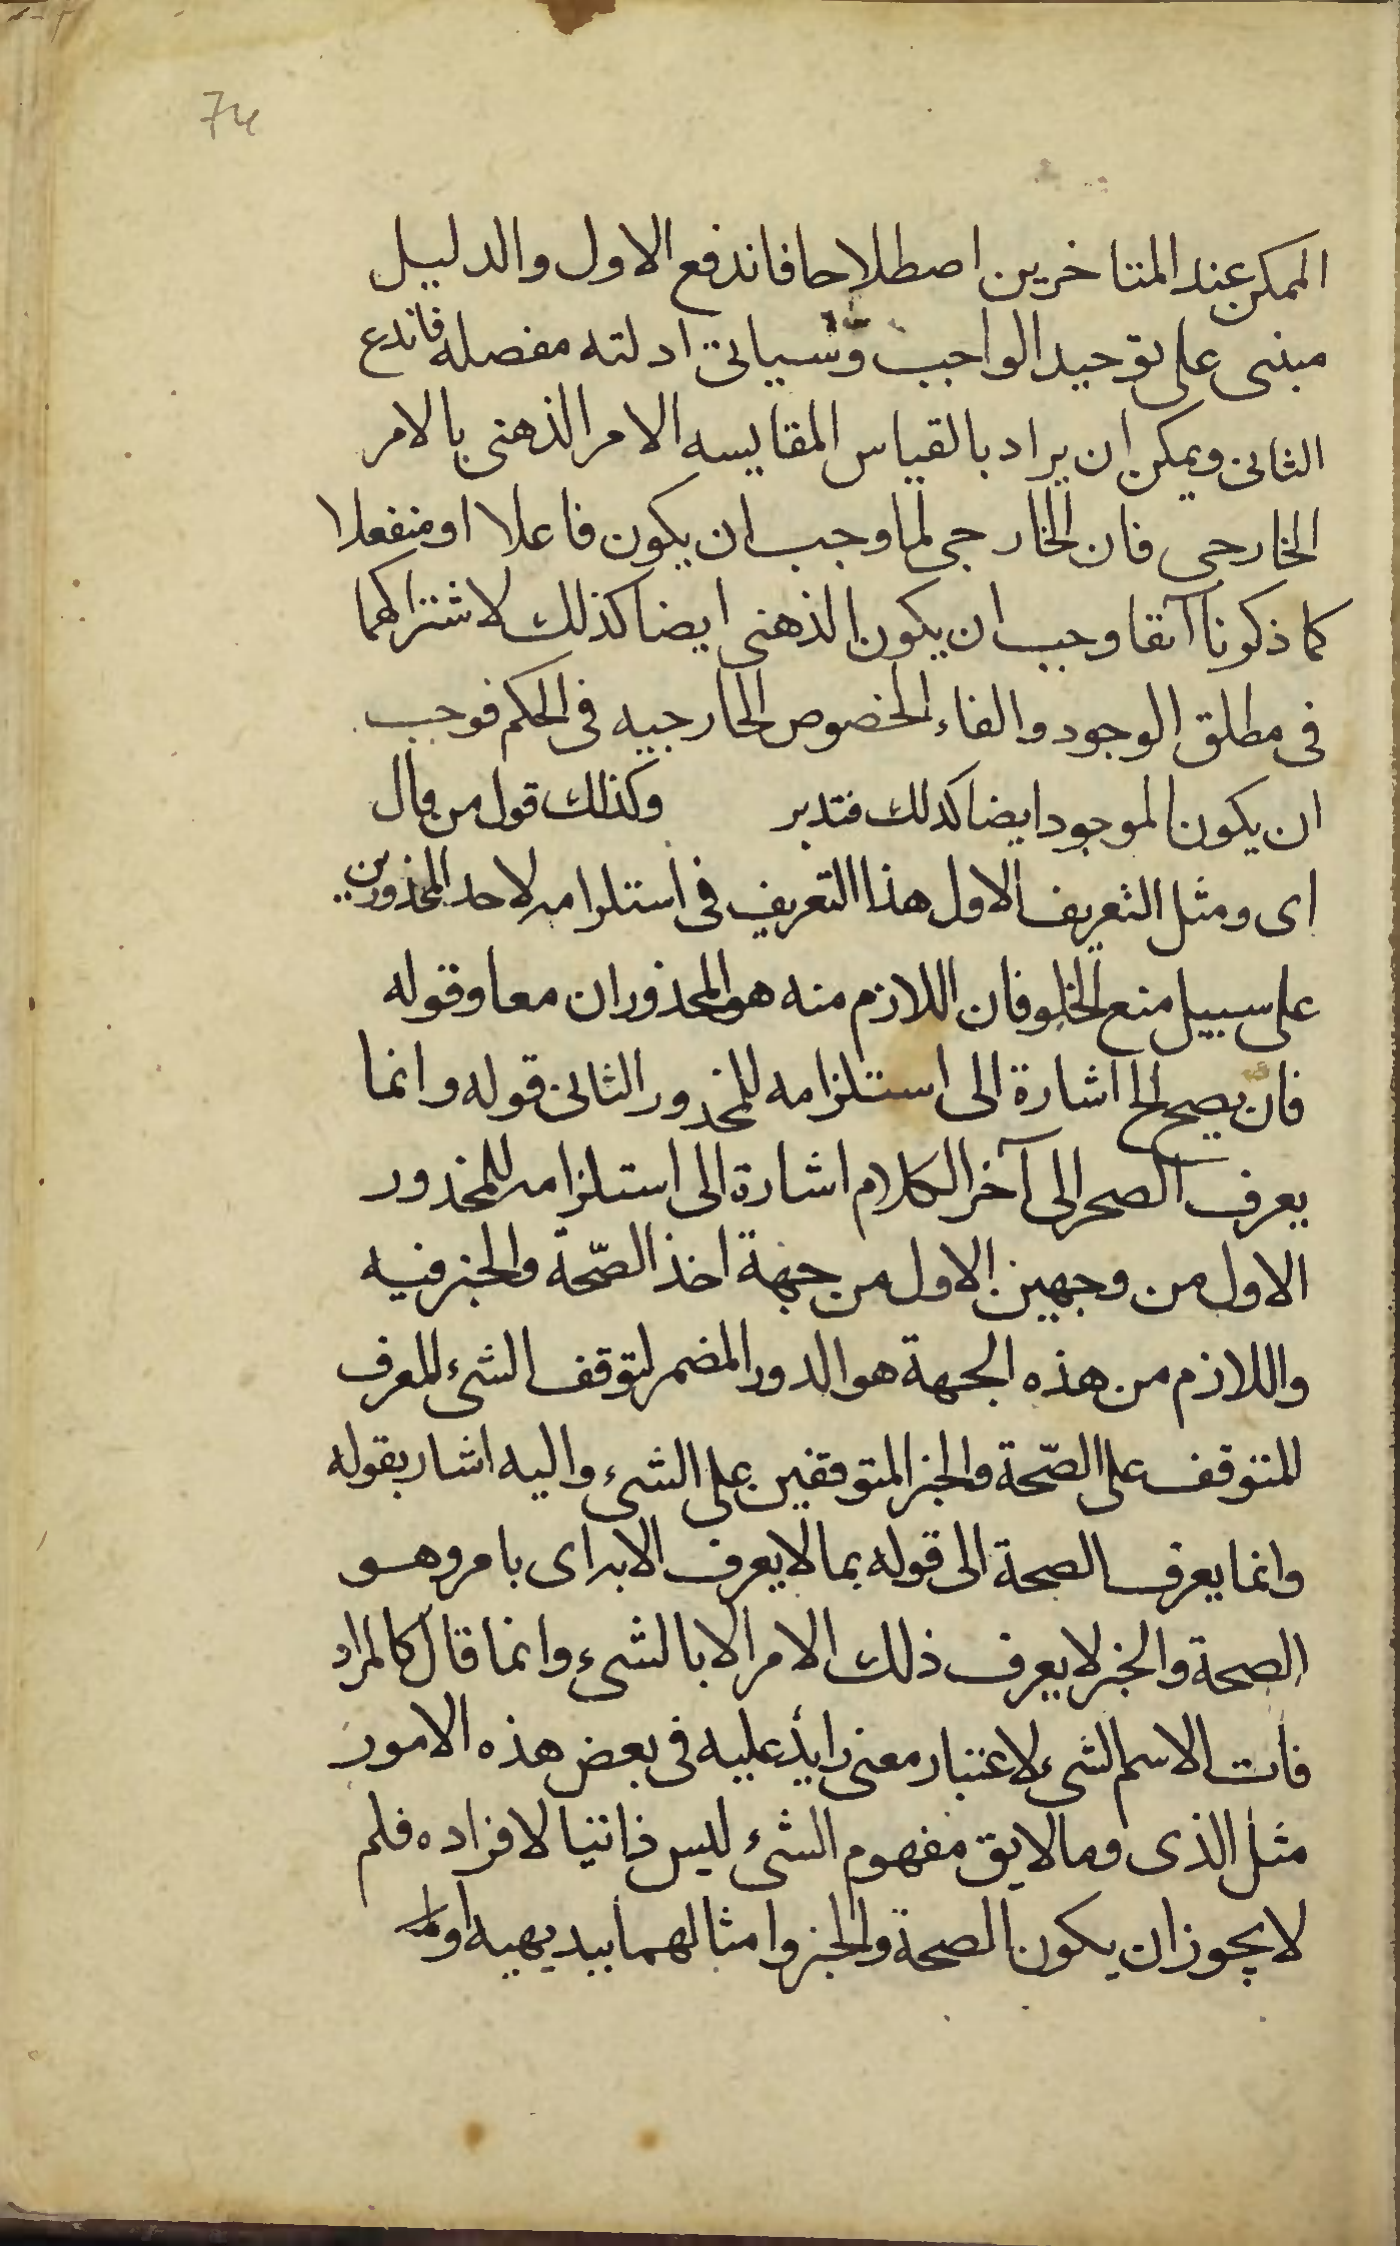 74
الممكن عند المتاخرين اصطلاحا فاندفع الاول والدليل
مبنى على توحيد الواجب وسياتى ادلته مفصله فاندع
الثانى ويمكن ان يراد بالقياس المقايسه الامر الذهنى بالامر
الخارجى فان الخارجى لما وجب ان يكون فاعلا او منفعلا
كما ذكونا آنفا وجب ان يكون الذهنى ايضا كذلك لاشتراكهما
فى مطلق الوجود والفاء الخصوص الخارجييه فى الحكم فوجب
ان يكون الموجود ايضا كدلك فتدبر وكذلك قول من قال
اى ومثل التعريف الاول هذا التعريف فى استلزامه لاحد المحذورين
على سبيل منع الخلو فان اللازم منه هو المحذوران معا وقوله
فان يصح الخ اشارة الى استلزامه للمحذور الثانى قوله وانما
يعرف الصحه الى آخر الكلام اشارة الى استلزامه للمحذور
الاول من وجهين الاول من جهة اخذ الصّحة والخبر فيه
واللازم من هذه الجهة هو الدور المضمر لتوقف الشىء المعرف
المتوقف على الصّحة والخبر المتوقفين على الشىء واليه اشار بقوله
وانما يعرف الصحة الى قوله بما لا يعرف الا به اى بامر وهو
الصحة والخبر لا يعرف ذلك الامر الا بالشىء وانما قال كالمراد
فات الاسم الشىء لاعتبار معنى زايد عليه فى بعض هذه الامور
مثل الذى وما لايق مفهوم الشىء ليس ذاتيا لافراده فلم
لا يجوز ان يكون الصحة والخبر وامثالهما بيديهيه او